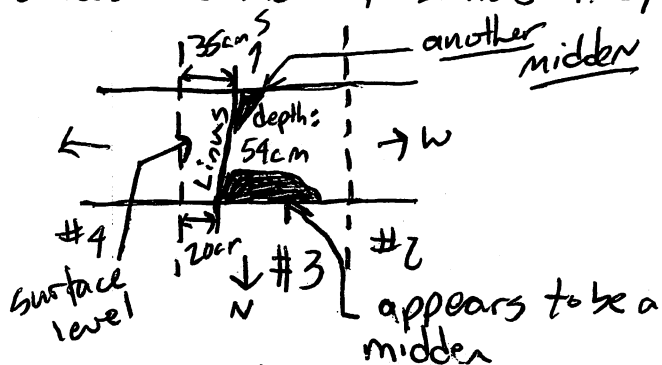 35cm S
another
midden
depth:
54cm
Linus
W
#4
20cm
#3
#2
surface
level
N
appears to be a
midden